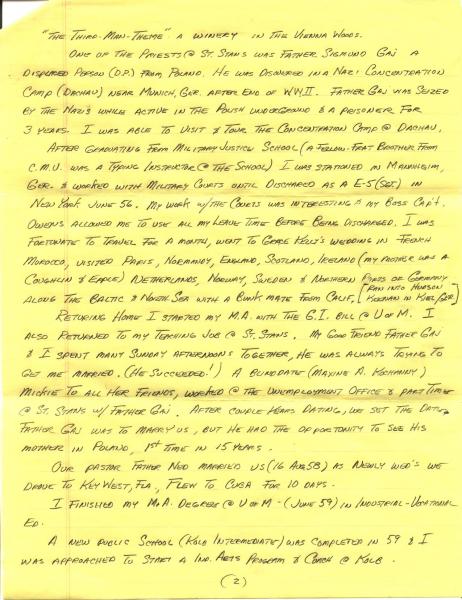 "THE THIRD-MAN-THEME" A WINERY IN THE VIENNA WOODS.
ONE OF THE PRIESTS @ ST. STANS WAS FATHER SIGMUND GAJ A
DISPLACED PERSON (D.P.) FROM POLAND. HE WAS DISCOVERED IN A NAZI CONCENTRATION
CAMP (DACHAU) NEAR MUNICH, GER. AFTER END OF W.W. II. FATHER GAJ WAS SEIZED
BY THE NAZIS WHILE ACTIVE IN THE POLISH UNDERGROUND & A PRISONER FOR
3 YEARS. I WAS ABLE TO VISIT & TOUR THE CONCENTRATION CAMP @ DACHAU.
AFTER GRADUATING FROM MILITARY JUSTICE SCHOOL (A FELLOW-FRAT BROTHER FROM
C.M.U. WAS A TYPING INSTRUCTOR @ THE SCHOOL) I WAS STATIONED IN MANNHEIM,
GER. & WORKED WITH MILITARY COURTS UNTIL DISCHARGED AS A E-5 (SGT) IN
NEW YORK JUNE 56. MY WORK W/THE COURTS WAS INTERESTING & MY BOSS CAPT.
OWENS ALLOWED ME TO USE ALL MY LEAVE TIME BEFORE BEING DISCHARGED. I WAS
FORTUNATE TO TRAVEL FOR A MONTH, WENT TO GRACE KELLY'S WEDDING IN FRENCH
MOROCCO, VISITED PARIS, NORMANDY, ENGLAND, SCOTLAND, IRELAND (MY MOTHER WAS A
COUGHLIN & EARLE) NETHERLANDS, NORWAY, SWEDEN & NORTHERN PARTS OF GERMANY
ALONG THE BALTIC & NORTH SEA WITH A BUNK MATE FROM CALIF. [RAN INTO HUDSON
KEENAN IN KIEL, GER]
RETURING HOME I STARTED MY M.A. WITH THE G.I. BILL @ U OF M. I
ALSO RETURNED TO MY TEACHING JOB @ ST. STANS. MY GOOD FRIEND FATHER GAJ
& I SPENT MANY SUNDAY AFTERNOONS TOGETHER, HE WAS ALWAYS TRYING TO
GET ME MARRIED. (HE SUCCEEDED!) A BLIND DATE (MAXINE A. KOCHANNY)
MICKIE TO ALL HER FRIENDS, WORKED @ THE UNEMPLOYMENT OFFICE & PART TIME
@ ST. STANS W/ FATHER GAJ. AFTER COUPLE YEARS DATING, WE SET THE DATE,
FATHER GAJ WAS TO MARRY US, BUT HE HAD THE OPPORTUNITY TO SEE HIS
MOTHER IN POLAND, 1ST TIME IN 15 YEARS.
OUR PASTOR FATHER NED MARRIED US (16 AUG 58) AS NEWLY WED'S WE
DROVE TO KEY WEST, FLA, FLEW TO CUBA FOR 10 DAYS.
I FINISHED MY M.A. DEGREE @ U OF M - (JUNE 59) IN INDUSTRIAL-VOCATIONAL
ED.
A NEW PUBLIC SCHOOL (KOLB INTERMEDIATE) WAS COMPLETED IN 59 & I
WAS APPROACHED TO START A IND. ARTS PROGRAM & COACH @ KOLB.
(2)